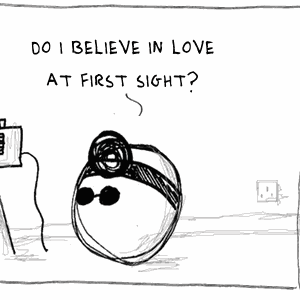 DO I BELIEVE IN LOVE
AT FIRST SIGHT?